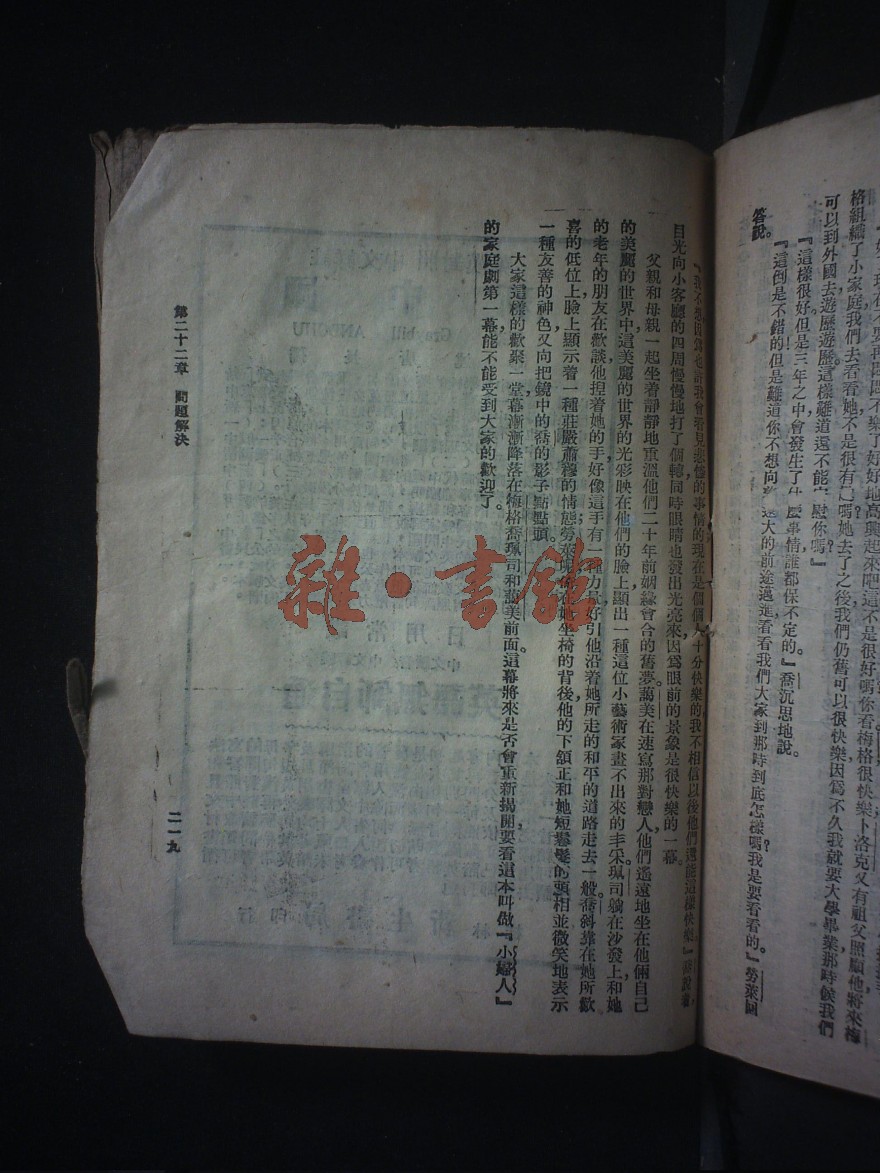 格組織了小家庭,我們去看看她不是很有趣嗎她去了之後我們仍舊可以很快樂因爲不久我就要大學畢業那時候我們
可以到外國去遊歷遊歷這樣難道還不能安慰你嗎?』
『這樣很好!但是三年之中會發生了什麼事情誰都保不定的。』喬沉思地說。
『這倒是不錯的但是難道你不想向遠大的前途邁進看看我們大家到那時到底怎樣嗎?我是要看看的。』勞萊回
答說。
目光向小客廳的四周慢慢地打了個轉,同時眼睛也發出光亮來,因爲眼前的景象是很快樂的一幕。
父親和母親一起坐着靜靜地重溫他們二十年前姻緣會合的舊夢。萬美在速寫那對戀人,他們遙遠地坐在他倆自己
的美麗的世界中,這美麗的世界的光彩映在他們的臉上,顯出一種這位小藝術家畫不出來的丰采。珮司躺在沙發上,和她
的老年的朋友在歡談,他揑着她的手,好像這手有一種力量好引他沿着她所走的和平的道路走去一般。喬斜靠在她所歡
喜的低位上,臉上顯示着一種莊嚴肅穆的情態;勞萊呢,倚在她坐椅的背後,他的下頷正和她短鬈髮的頭相並,微笑地表示
一種友善的神色,又向把鏡中的喬的影子點點頭。
大家這樣的歡聚一堂,幕漸漸降落在梅格、喬、珮司和萬美前面。這幕將來是否會重新揭開,要看這本叫做『小婦人』
的家庭劇第一幕,能不能受到大家的歡迎了。
第二十二章 問題解決
二一九
雜·書館